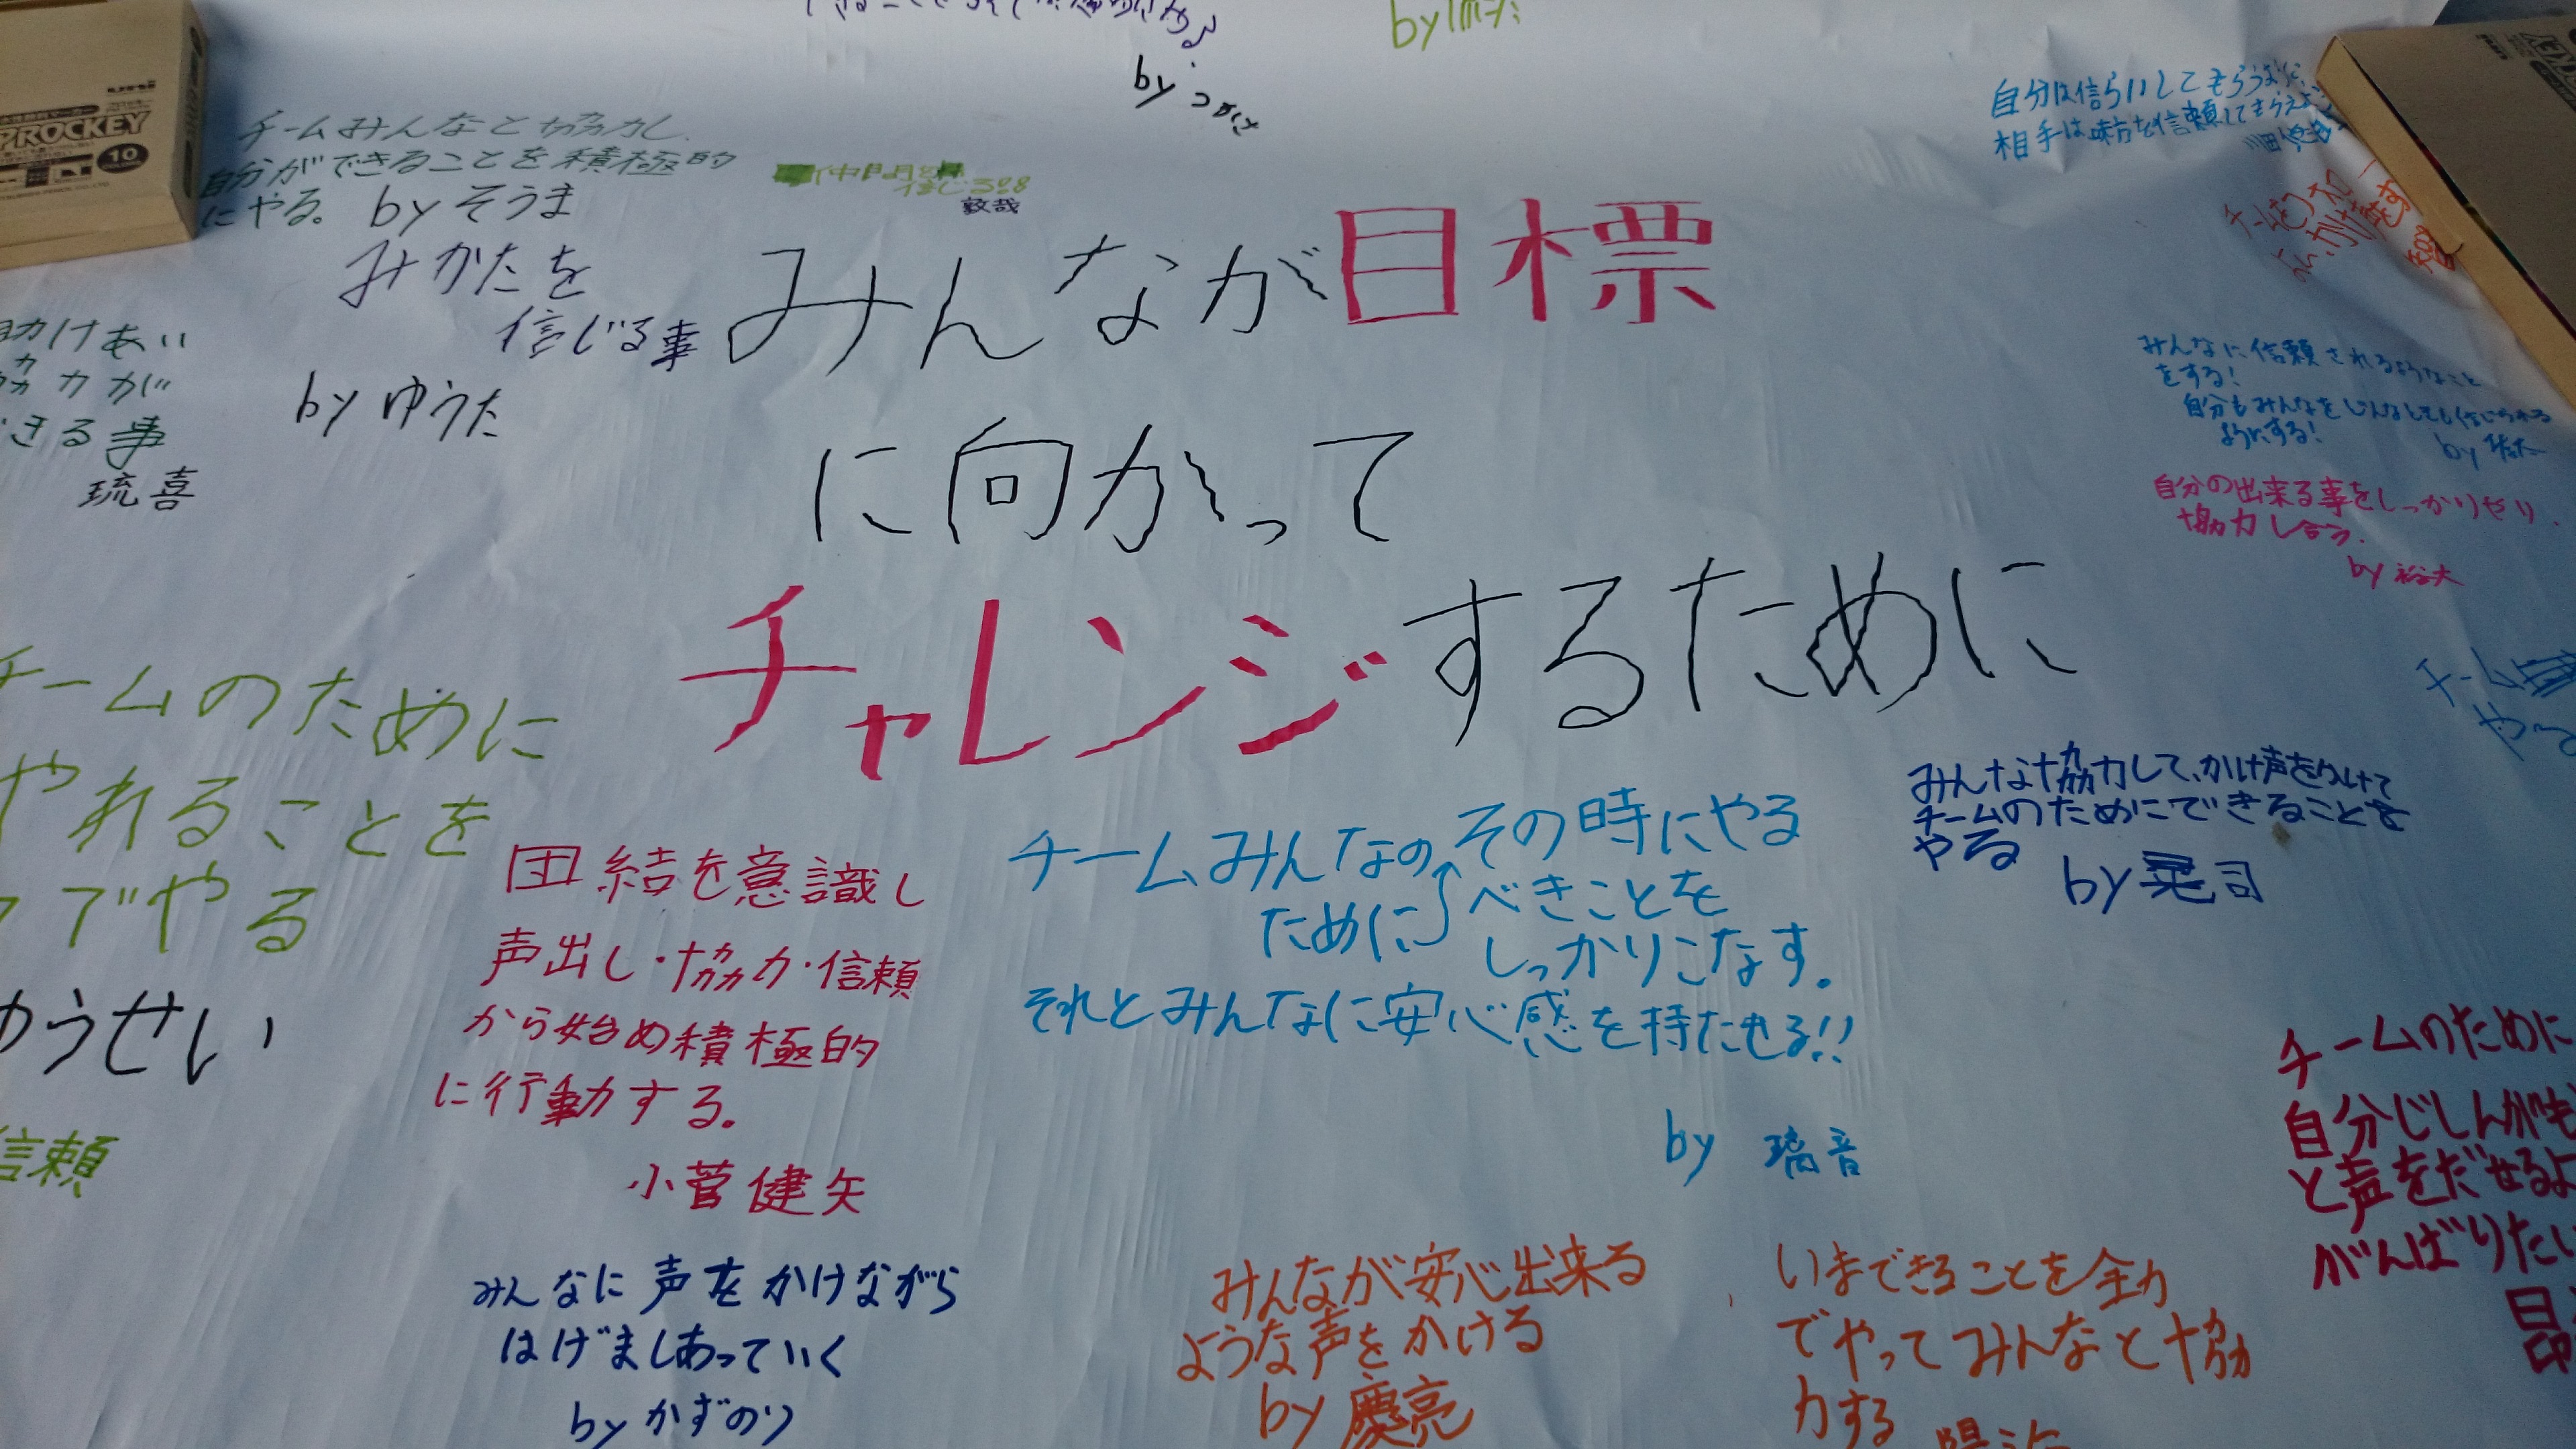 by つかさ
by
uni
PROCKEY
10
チームみんなと協力し
自分ができることを積極的
にやる。 by そうま
仲間を
信じる
敦哉
自分は信らいしてもらうように
相手は味方を信頼してもらえ
みかたを
信じる事
by ゆうた
助けあい
協力が
きる事
琉喜
みんなが目標
に向かって
チャレンジするために
みんなに信頼されるようなこと
をする!
自分もみんなを
ようにする!
by
自分の出来る事をしっかりやり
協力し合う.
by 裕大
チーム
チームのために
やれることを
でやる
ゆうせい
信頼
団結を意識し
声出し・協力・信頼
から始め積極的
に行動する。
小菅健矢
チームみんなの
ために
その時にやる
べきことを
しっかりこなす。
それとみんなに安心感を持たせる!!
by 璃音
みんな協力して、かけ声をかけて
チームのためにできることを
やる
by 晃司
チームのために
自分じしんがも
と声をだせるよ
がんばりたい
昴
みんなに声をかけながら
はげましあっていく
by かずのり
みんなが安心出来る
ような声をかける
by 慶亮
いまできることを全力
でやってみんなと協
力する